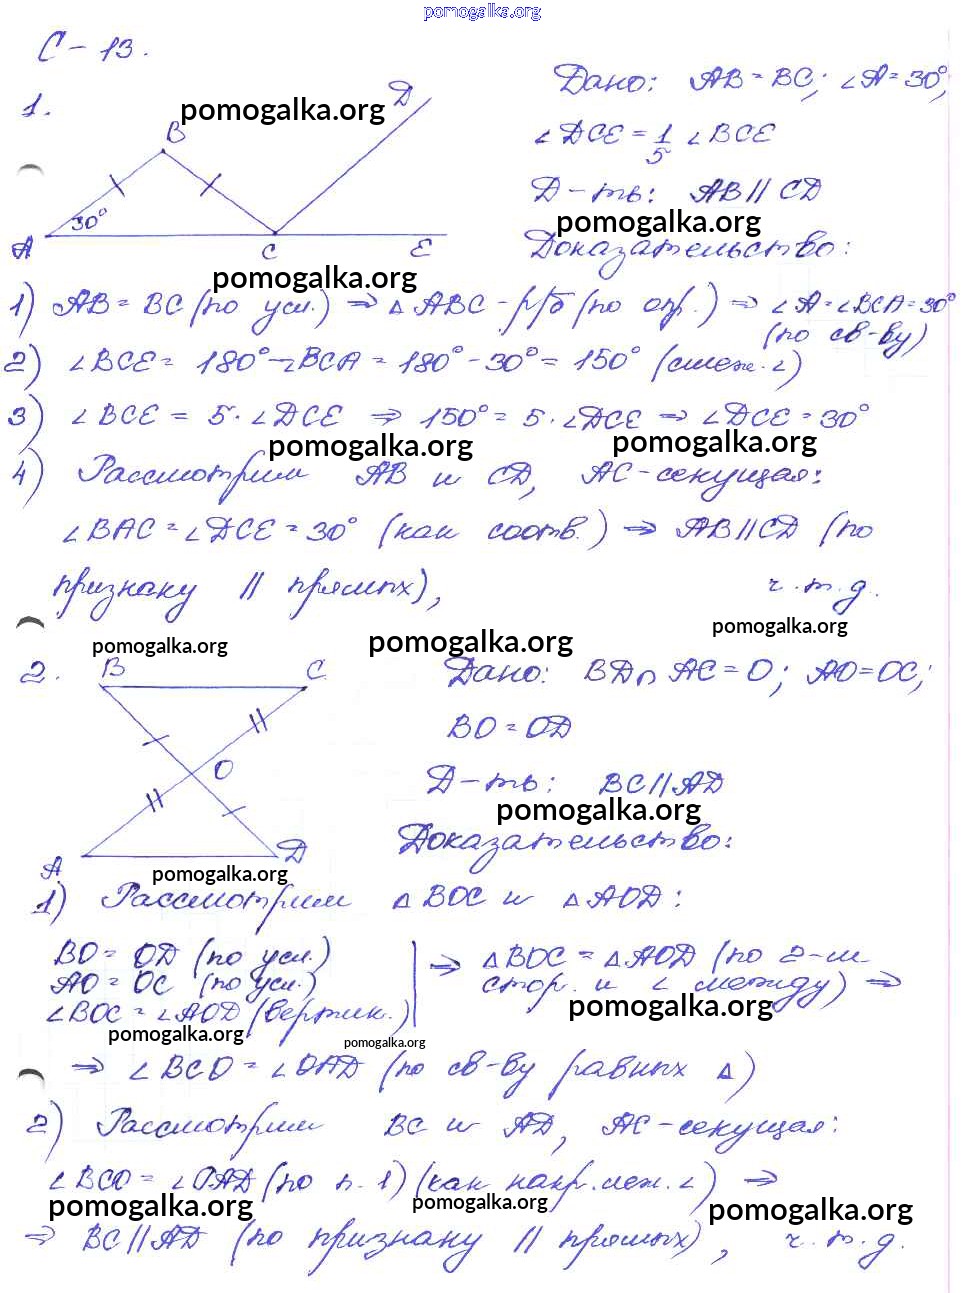 pomogalka.org
С-13.
1.
pomogalka.org
A
B
C
D
E
30°
Дано: AB = BC; ∠A = 30°;
∠DCE = 1/5 ∠BCE
Д-ть: AB || CD
pomogalka.org
Доказательство:
pomogalka.org
1) AB = BC (по усл.) ⇒ △ABC - р/б (по опр.) ⇒ ∠A = ∠BCA = 30°
(по св-ву)
2) ∠BCE = 180° - ∠BCA = 180° - 30° = 150° (смеж. ∠)
3) ∠BCE = 5 · ∠DCE ⇒ 150° = 5 · ∠DCE ⇒ ∠DCE = 30°
pomogalka.org pomogalka.org
4) Рассмотрим AB и CD, AC - секущая:
∠BAC = ∠DCE = 30° (как соотв.) ⇒ AB || CD (по
признаку || прямых), ч.т.д.
pomogalka.org pomogalka.org pomogalka.org
2.
B
C
O
A
D
Дано: BD ∩ AC = O; AO = OC;
BO = OD
Д-ть: BC || AD
pomogalka.org
Доказательство:
pomogalka.org
1) Рассмотрим △BOC и △AOD:
BO = OD (по усл.)
AO = OC (по усл.)
∠BOC = ∠AOD (вертик.)
⇒ △BOC = △AOD (по 2-м
стор. и ∠ между) ⇒
pomogalka.org
pomogalka.org pomogalka.org
⇒ ∠BCO = ∠OAD (по св-ву равных △)
2) Рассмотрим BC и AD, AC - секущая:
∠BCO = ∠OAD (по п. 1) (как накр. леж. ∠) ⇒
pomogalka.org pomogalka.org pomogalka.org
⇒ BC || AD (по признаку || прямых), ч.т.д.